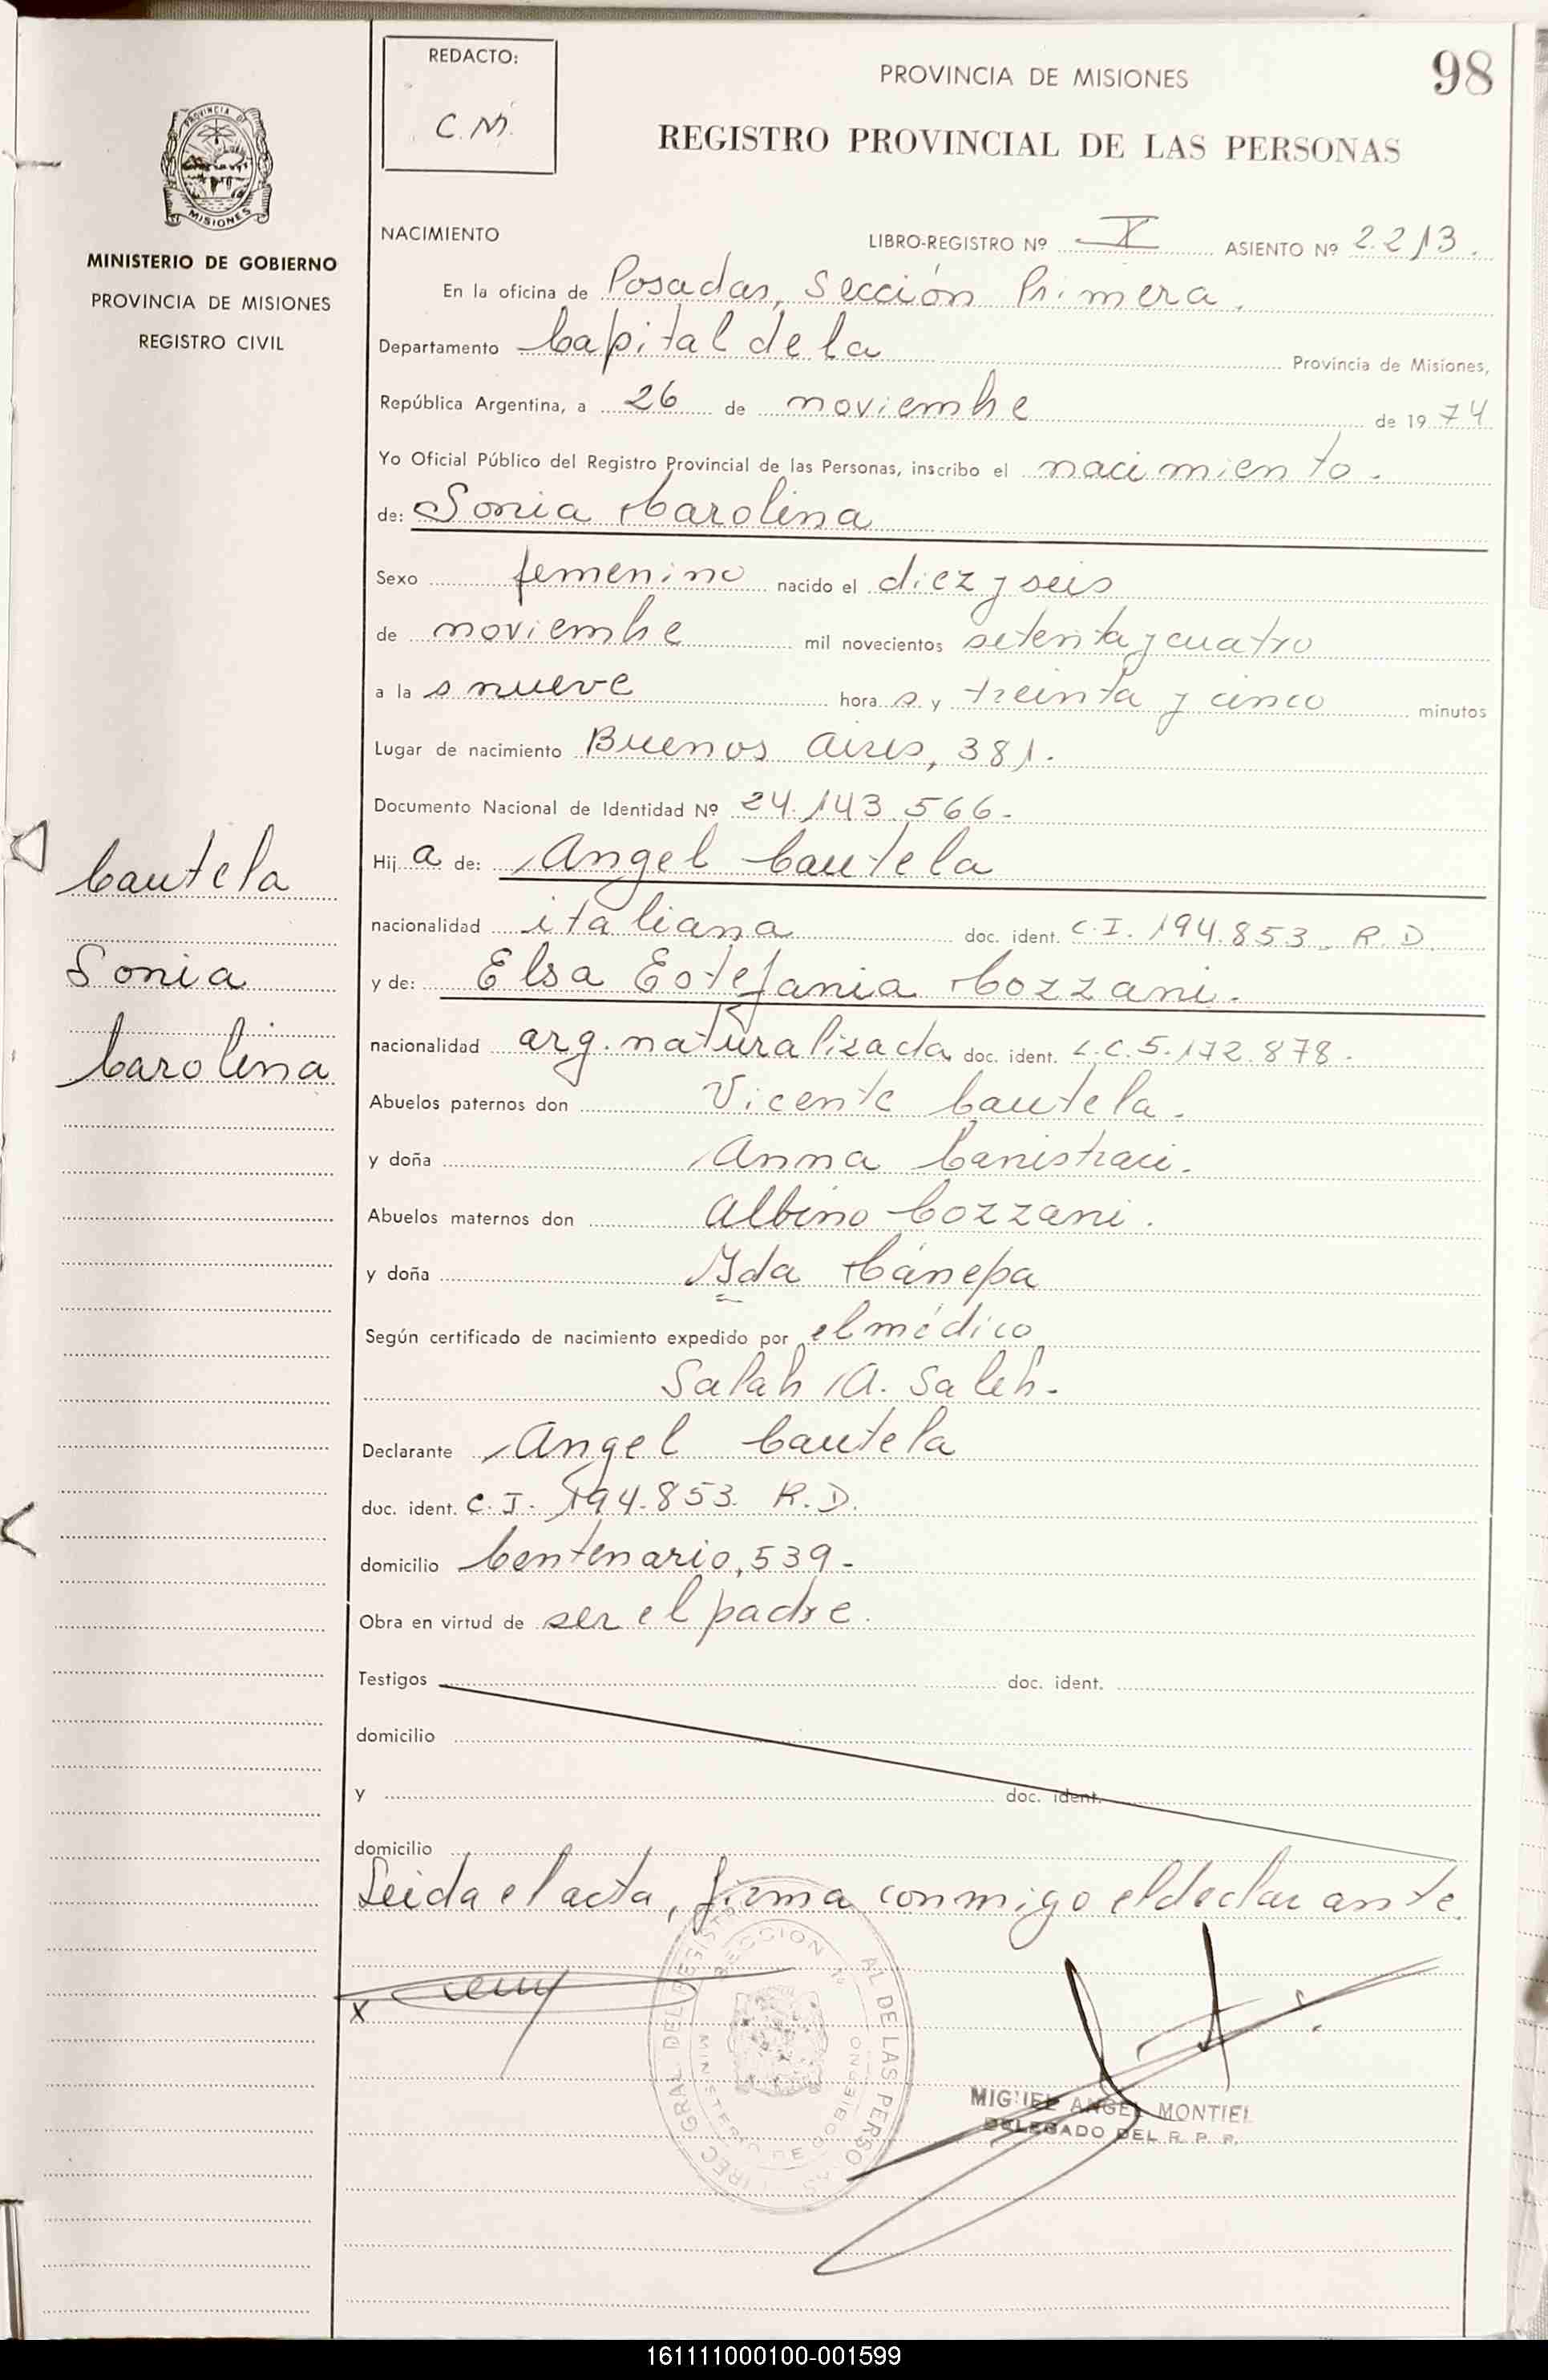 REDACTO:
C.M.
PROVINCIA DE MISIONES
98
REGISTRO PROVINCIAL DE LAS PERSONAS
PROVINCIA DE
MISIONES
MINISTERIO DE GOBIERNO
PROVINCIA DE MISIONES
REGISTRO CIVIL
NACIMIENTO
LIBRO-REGISTRO Nº X ASIENTO Nº 2.213.
En la oficina de Posadas, Sección Primera.
Departamento Capital de la Provincia de Misiones,
República Argentina, a 26 de noviembre de 1974
Yo Oficial Público del Registro Provincial de las Personas, inscribo el nacimiento.
de: Sonia Carolina
Sexo femenino nacido el diez y seis
de noviembre mil novecientos setenta y cuatro
a las nueve horas y treinta y cinco minutos
Lugar de nacimiento Buenos Aires, 381.
Documento Nacional de Identidad Nº 24.143.566.-
Hija de: Angel Cautela
nacionalidad italiana doc. ident. C.I. 194.853. R.D.
y de: Elsa Estefania Cozzani.
nacionalidad arg. naturalizada doc. ident. L.C. 5.172.878.
Abuelos paternos don Vicente Cautela.
y doña Anna Canistraci.
Abuelos maternos don Albino Cozzani.
y doña Ida Cánepa
Según certificado de nacimiento expedido por el médico
Salah A. Saleh.
Declarante Angel Cautela
doc. ident. C.I. 194.853. R.D.
domicilio Centenario, 539-
Obra en virtud de ser el padre.
Testigos doc. ident.
domicilio
y doc. ident.
domicilio
Leida el acta, firma conmigo el declarante.
Cautela
Sonia
Carolina
x
SECCION 1º
MINISTERIO DE GOBIERNO
MIGUEL ANGEL MONTIEL
DELEGADO DEL R. P. P.
161111000100-001599